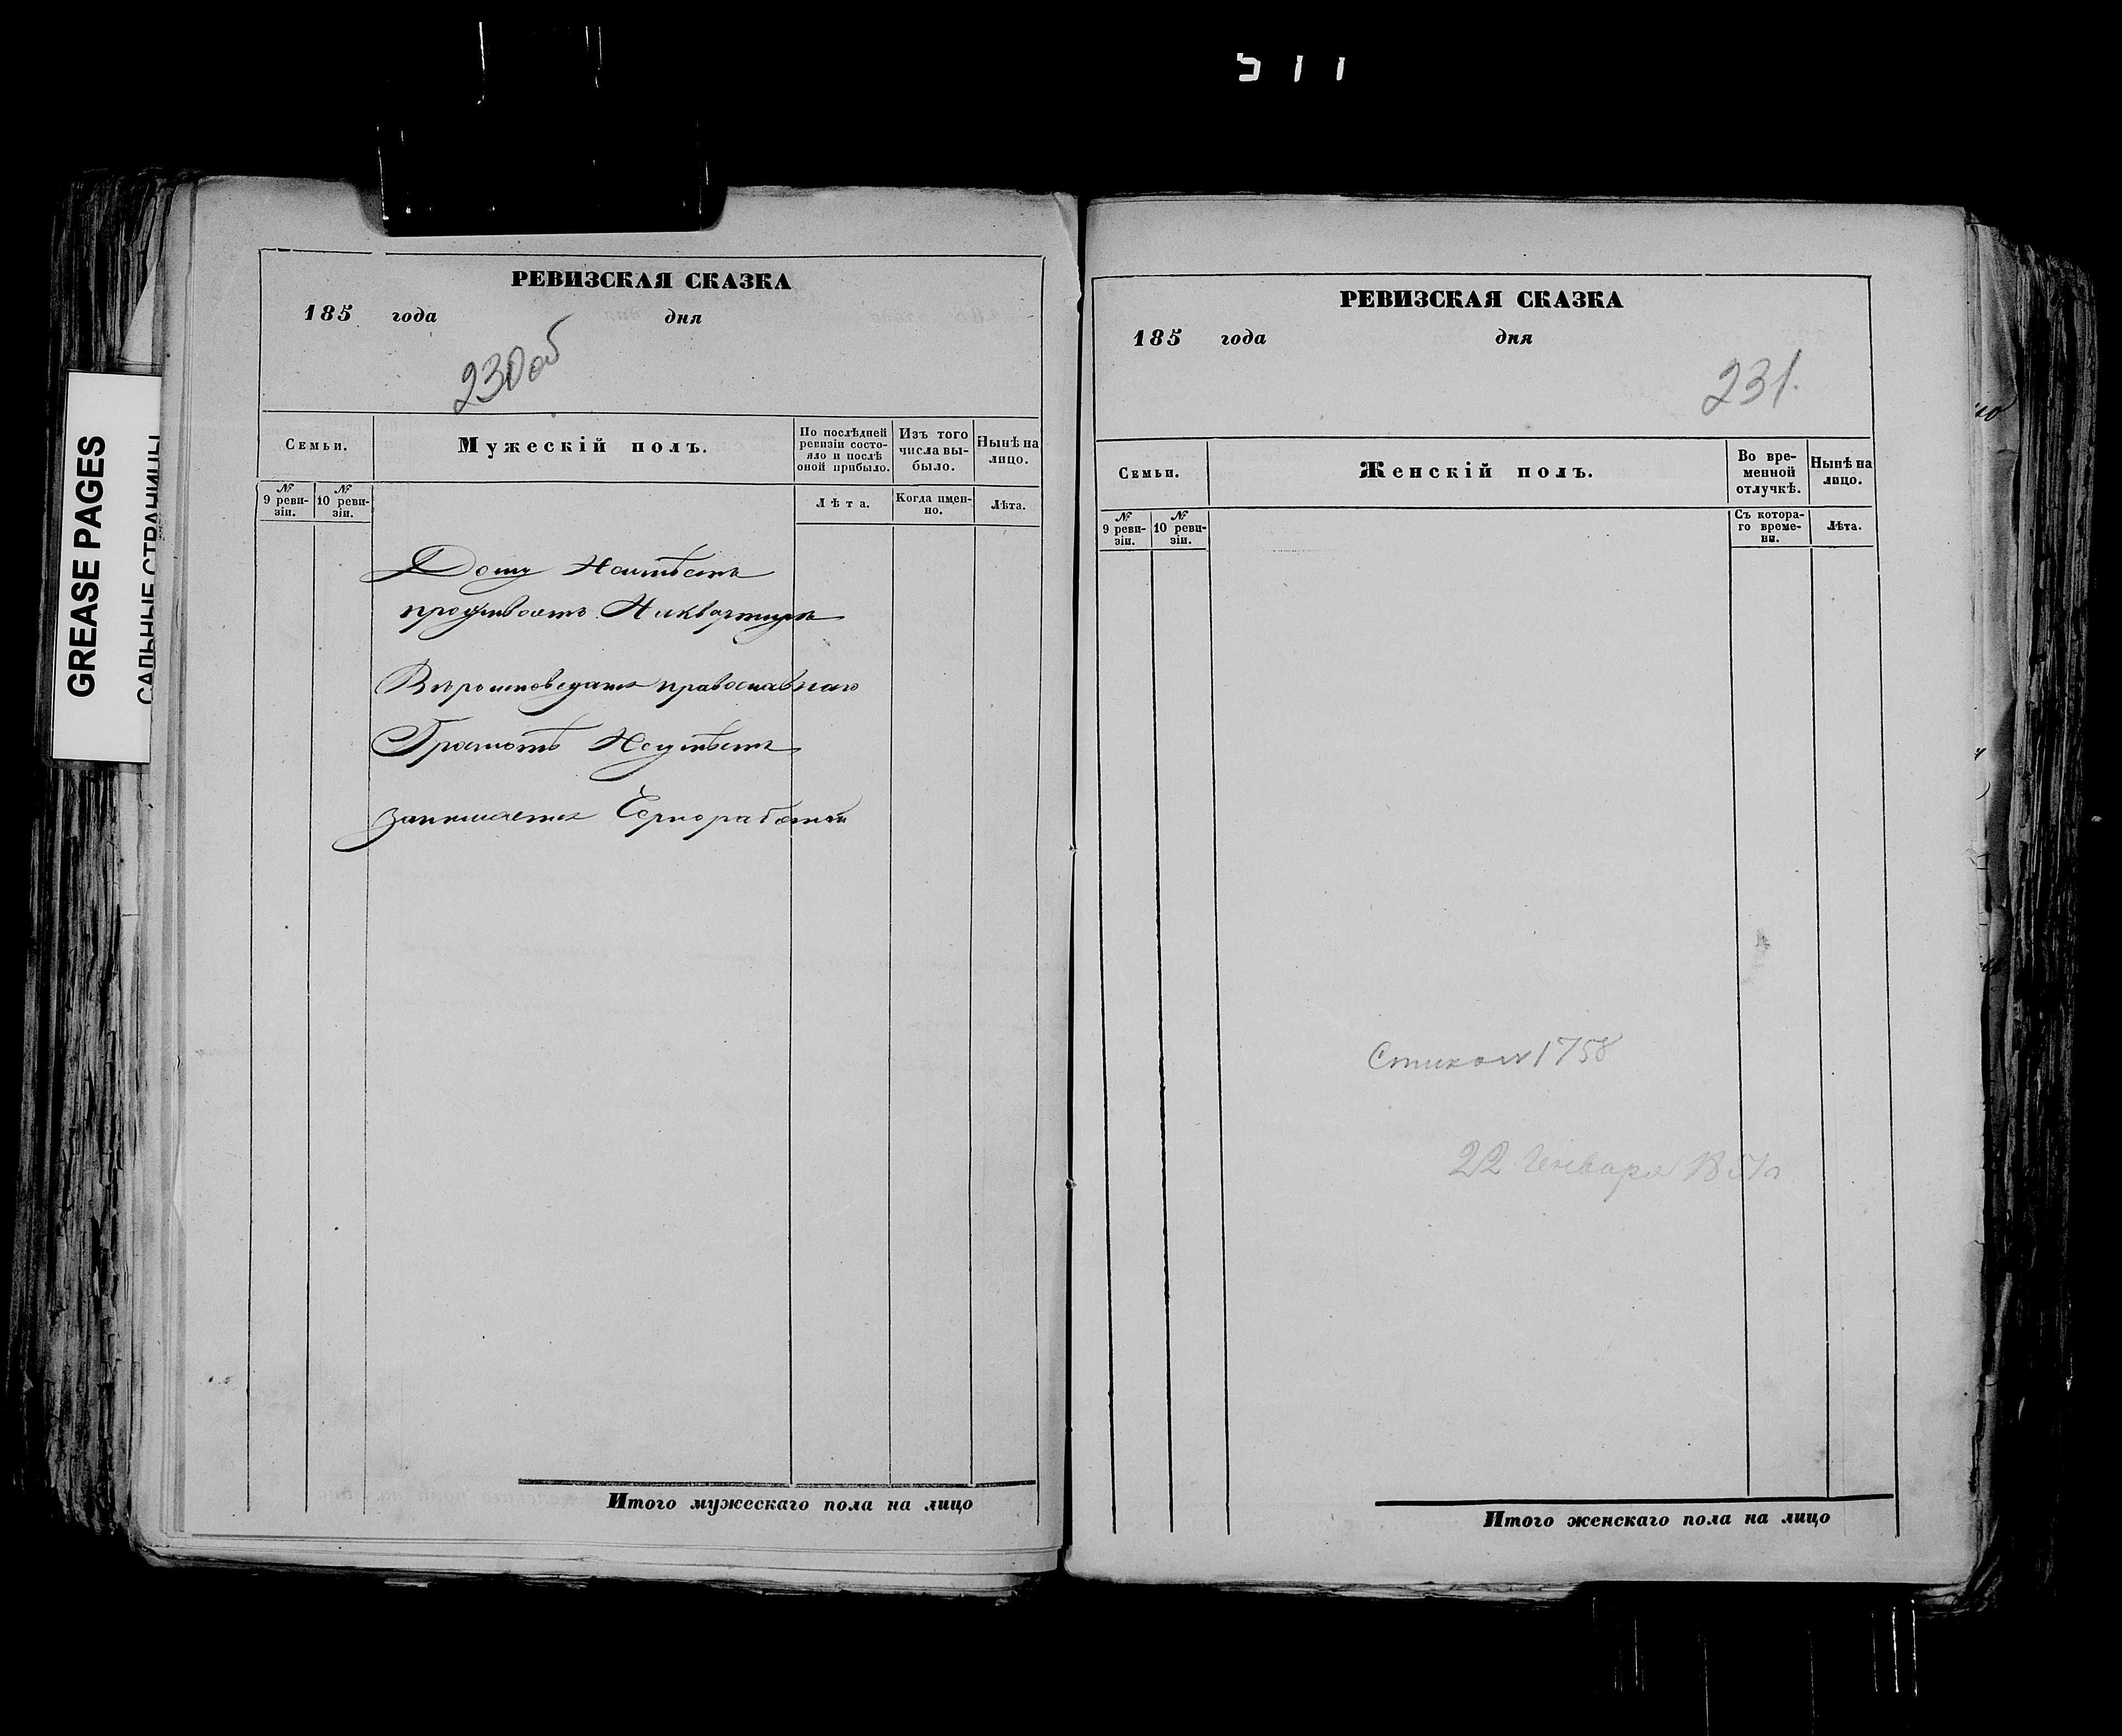 511
GREASE PAGES
САЛЬНЫЕ СТРАНИЦЫ
РЕВИЗСКАЯ СКАЗКА
185 года дня
230 об
Семьи.
Мужескій полъ.
По послѣдней ревизіи состо-
яло и послѣ оной прибыло.
Изъ того числа вы-
было.
Нынѣ на лицо.
№ 9 реви-
зіи.
№ 10 реви-
зіи.
Лѣта.
Когда имен-
но.
Лѣта.
Дому Неимѣетъ
проживаетъ Наквартире
Вероисповедания православнаго
Грамотѣ Неумѣетъ
занимается Чернорабочей
Итого мужескаго пола на лицо
РЕВИЗСКАЯ СКАЗКА
185 года дня
231.
Семьи.
Женскій полъ.
Во вре-
менной
отлучкѣ.
Нынѣ на
лицо.
№ 9 реви-
зіи.
№ 10 реви-
зіи.
Съ котора-
го време-
ни.
Лѣта.
1758
22 Генваря
Итого женскаго пола на лицо